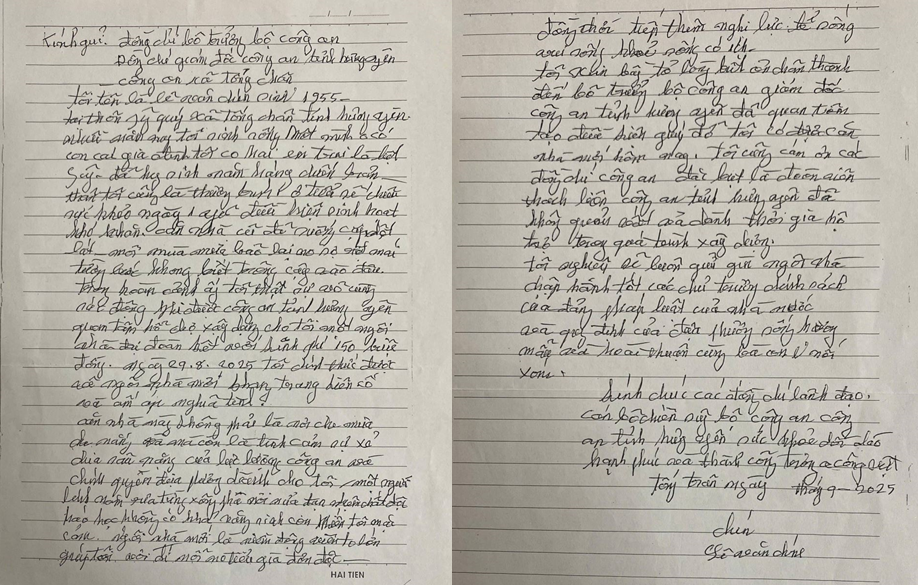 Kính gửi: đồng chí bộ trưởng bộ công an
Đồng chí giám đốc công an tỉnh hưng yên
công an xã tống trân
tôi tên là lê văn chín sinh 1955-
tại thôn quý xã Tống chân tỉnh hưng yên.
nhiều năm nay tôi sinh sống một mình
con cái gia đình tôi có hai em trai là liệt
sỹ đã hy sinh
thân tôi cũng là thương binh ở tuổi
sức khỏe ngày 1 yếu điều kiện sinh hoạt
khó khăn. căn nhà cũ đã xuống cấp
mỗi mùa mưa bão lại
không biết trông cậy vào đâu.
trong hoàn cảnh ấy tôi thật sự vô cùng
xúc động khi được công an tỉnh hưng yên
quan tâm hỗ trợ xây dựng cho tôi một ngôi
nhà đại đoàn kết với kinh phí 150 triệu
đồng. ngày 29.8.2025 tôi chính thức được
về ngôi nhà mới khang trang kiên cố
và ấm áp nghĩa tình.
căn nhà này không phải là nơi che mưa
che nắng mà còn là tình cảm sự sẻ
chia sâu nặng của lực lượng công an và
chính quyền địa phương dành cho tôi một người
lính năm xưa từng
cảnh. ngôi nhà mới là niềm động viên to lớn
giúp tôi
HAI TIEN
đồng thời tiếp thêm nghị lực để sống
vui sống khỏe sống có ích.
tôi xin bày tỏ lòng biết ơn chân thành
đến bộ trưởng bộ công an giám đốc
công an tỉnh hưng yên đã quan tâm
tạo điều kiện giúp đỡ tôi có được căn
nhà mới hôm nay. Tôi cũng cám ơn các
đồng chí công an đặc biệt là đoàn viên
thanh niên công an tỉnh hưng yên đã
không quản vất vả dành thời gia hỗ
trợ trong quá trình xây dựng.
tôi nguyện sẽ luôn giữ gìn ngôi nhà
chấp hành tốt các chủ trương chính sách
của đảng pháp luật của nhà nước
và quy định của địa phương sống gương
mẫu và hòa thuận cùng bà con lối
xóm.
kính chúc các đồng chí lãnh đạo,
cán bộ chiến sỹ bộ công an công
an tỉnh hưng yên sức khỏe dồi dào
hạnh phúc và thành công trong công việc
tống trân ngày tháng 9-2025
chín
Lê văn chín